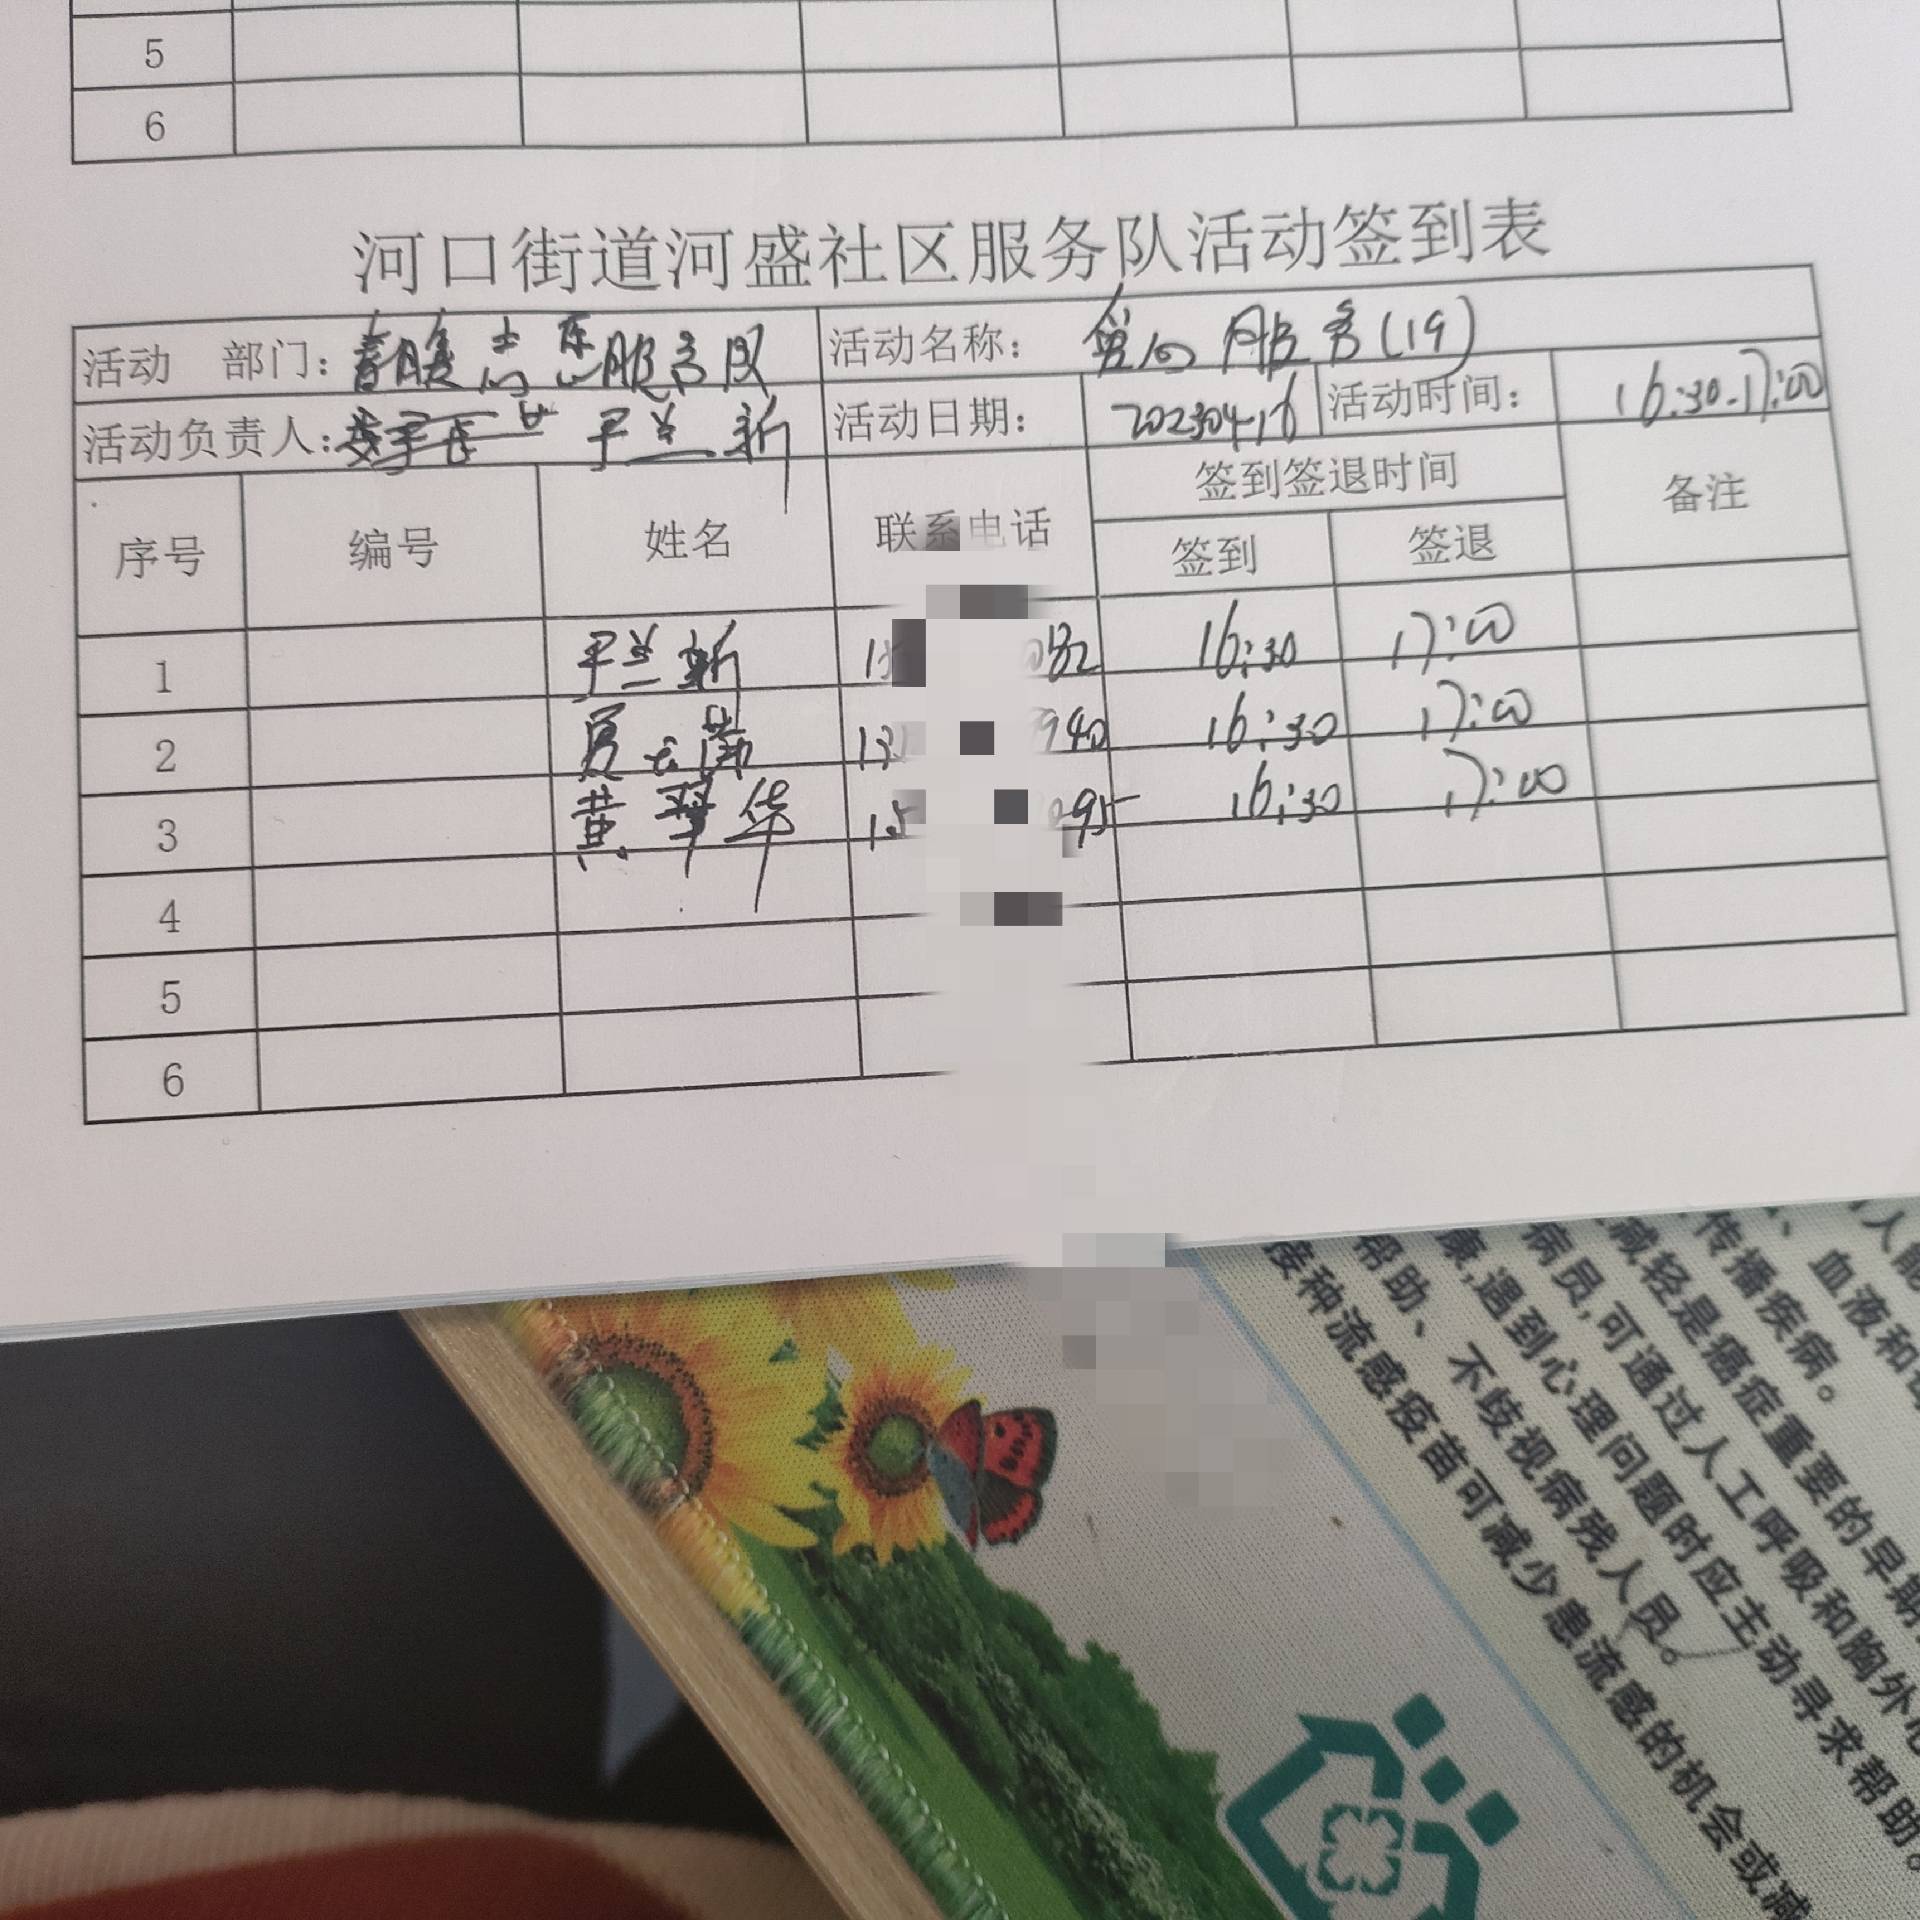 5
6
河口街道河盛社区服务队活动签到表
活动 部门: 春暖志愿服务队 活动名称: 服务(19)
活动负责人: 平兰新 活动日期: 20230416 活动时间: 16:30-17:00
序号 编号 姓名 联系电话 签到签退时间 备注
签到 签退
1 平兰新 16:30 17:00
2 16:30 17:00
3 黄翠华 16:30 17:00
4
5
6
、血液和
传播疾病。
减轻是癌症重要的早期
病员,可通过人工呼吸和胸外心
康,遇到心理问题时应主动寻求帮助。
帮助、不歧视病残人员。
接种流感疫苗可减少患流感的机会或减